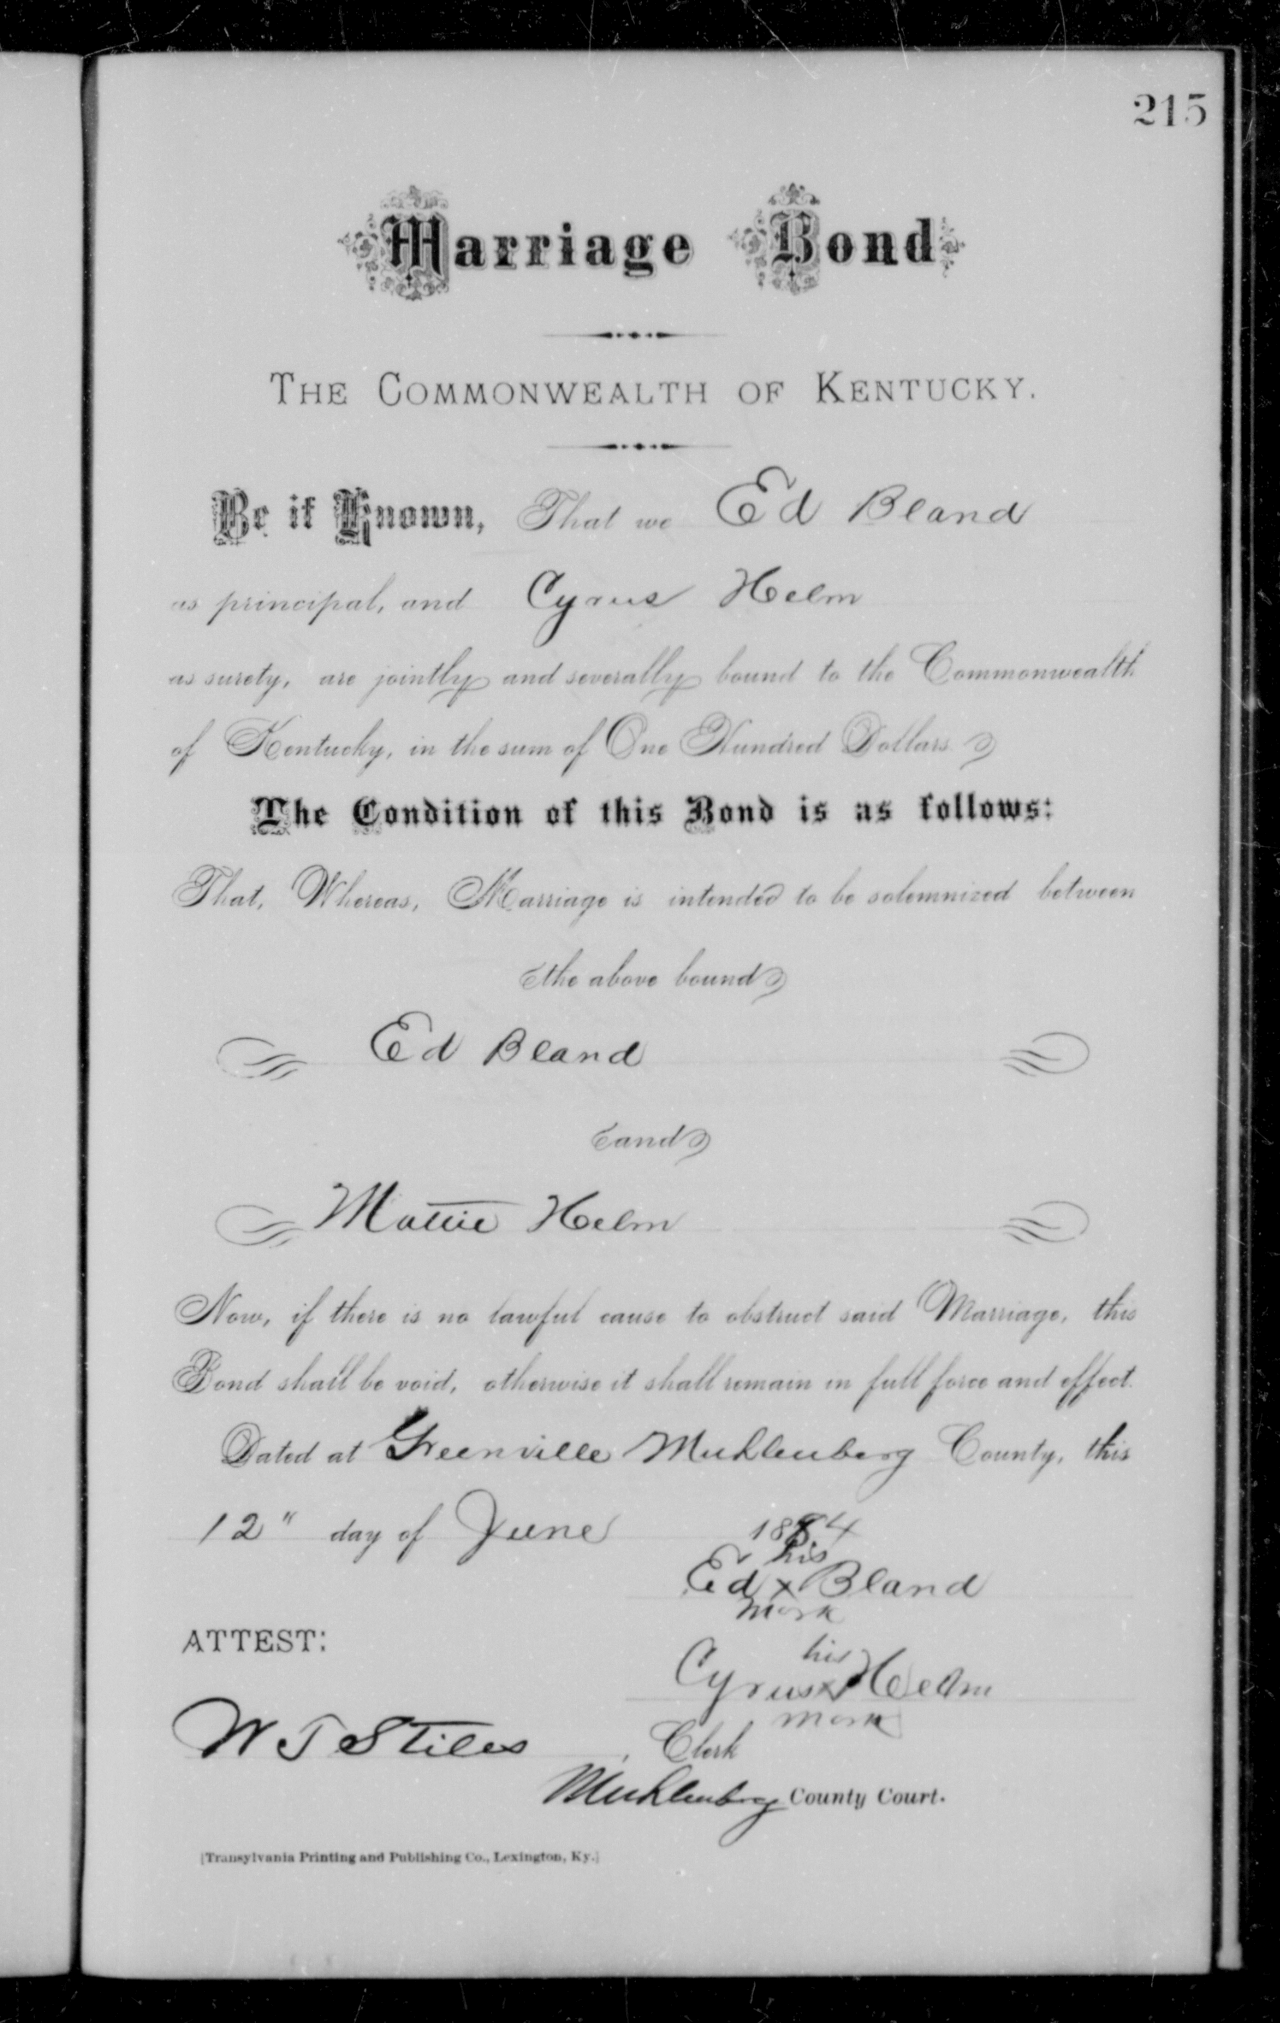 215
Marriage Bond
THE COMMONWEALTH OF KENTUCKY.
Be it Known, That we Ed Bland
as principal, and Cyrus Helm
as surety, are jointly and severally bound to the Commonwealth
of Kentucky, in the sum of One Hundred Dollars.
The Condition of this Bond is as follows:
That, Whereas, Marriage is intended to be solemnized between
the above bound
Ed Bland
and
Mattie Helm
Now, if there is no lawful cause to obstruct said Marriage, this
Bond shall be void, otherwise it shall remain in full force and effect.
Dated at Greenville Muhlenberg County, this
12" day of June 1884
his
Ed x Bland
mark
ATTEST:
his
Cyrus x Helm
mark
W J Stiles, Clerk
Muhlenberg County Court.
[Transylvania Printing and Publishing Co., Lexington, Ky.]